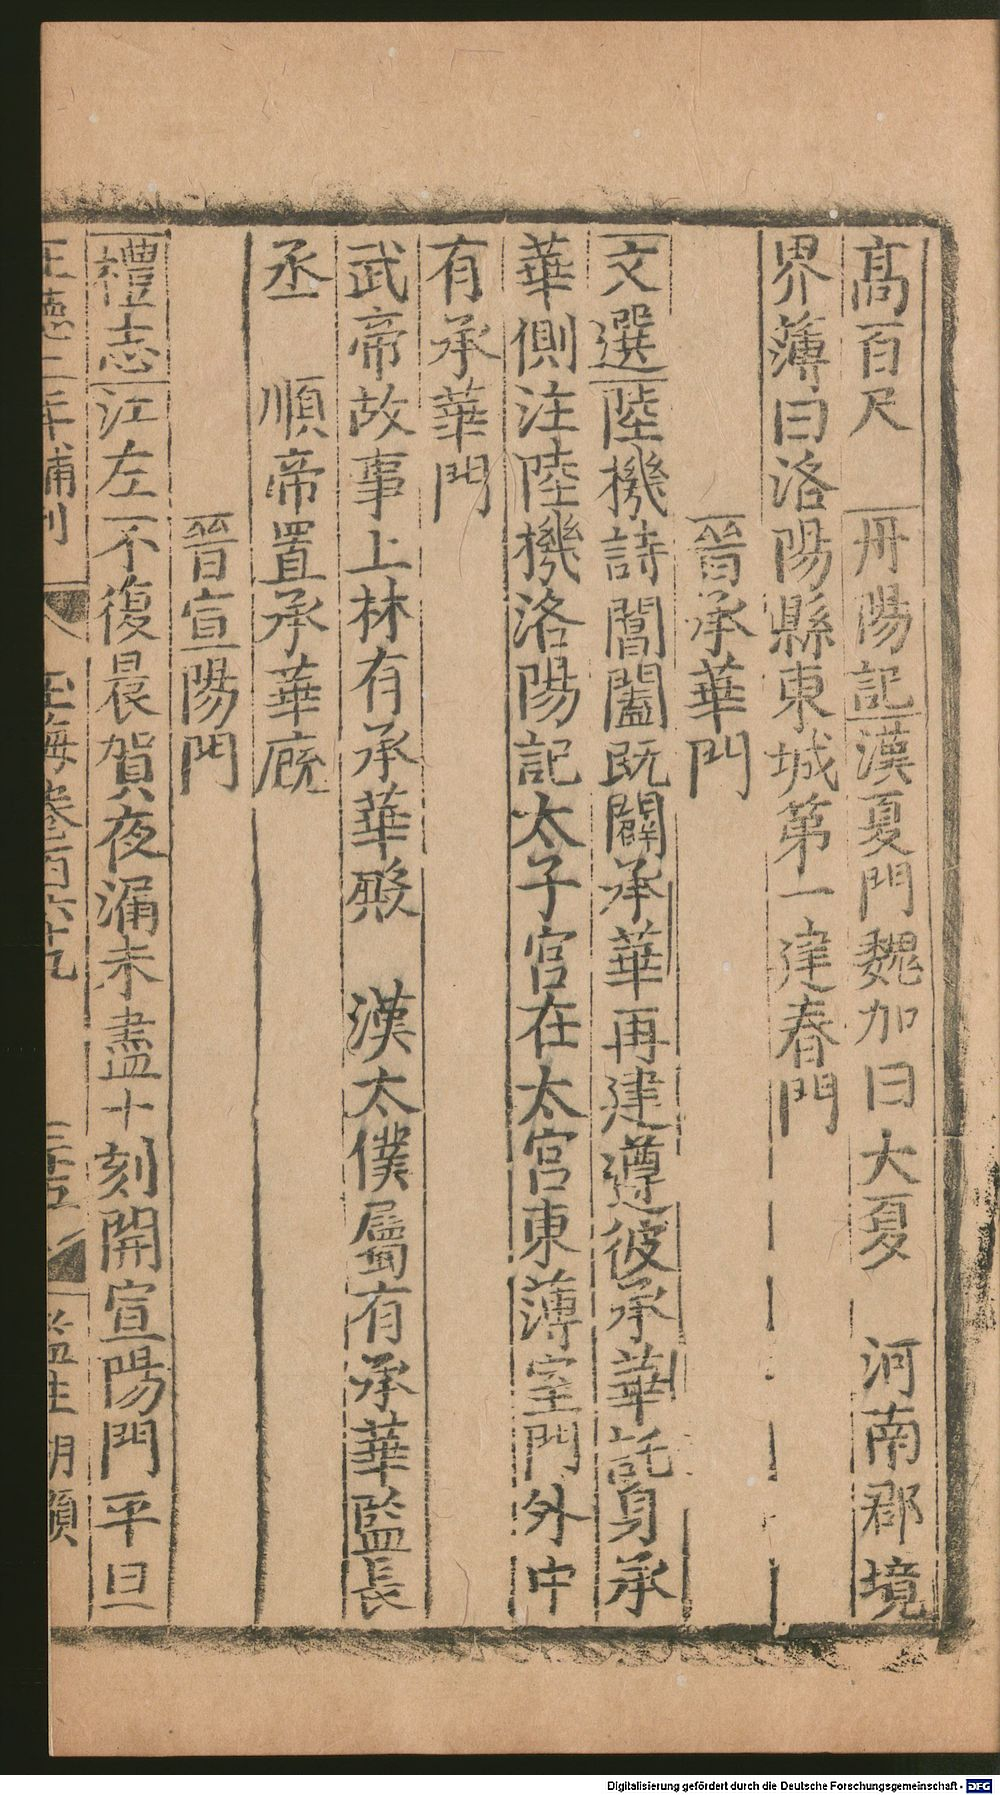 髙百尺　丹陽記漢夏門魏加曰大夏　河南郡境
界薄曰洛陽縣東城第一建春門
晉承華門
文選陸機詩閶闔既闢承華再建遵彼承華託身承
華側注陸機洛陽記太子宫在太宫東薄室門外中
有承華門
武帝故事上林有承華殿　漢太僕屬有承華監長
丞　順帝置承華廐
晉宣陽門
禮志江左不復晨賀夜漏未盡十刻開宣陽門平旦
正德二年補刊　玉海卷百六十九　三十五　監生胡顯
Digitalisierung gefördert durch die Deutsche Forschungsgemeinschaft - DFG